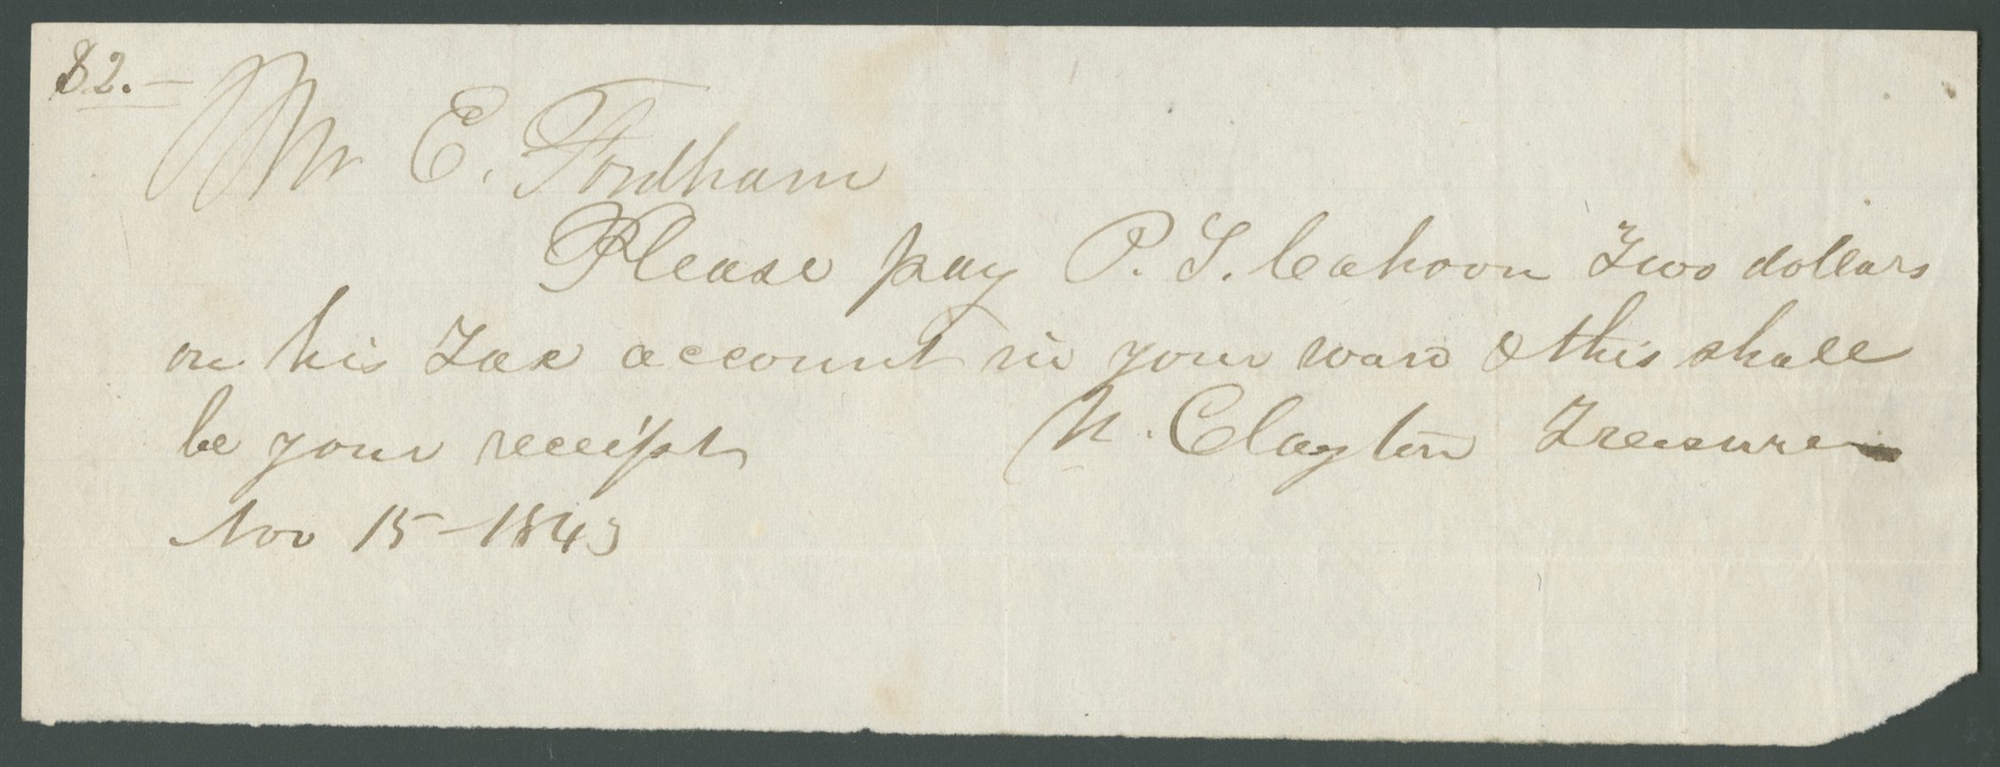 $2.—
Mr E. Fordham
Please pay P. S. Cahoon Two dollars
on his Tax account in your ward & this shall
be your receipt
N. Clayton Treasurer
Nov 15 - 1843